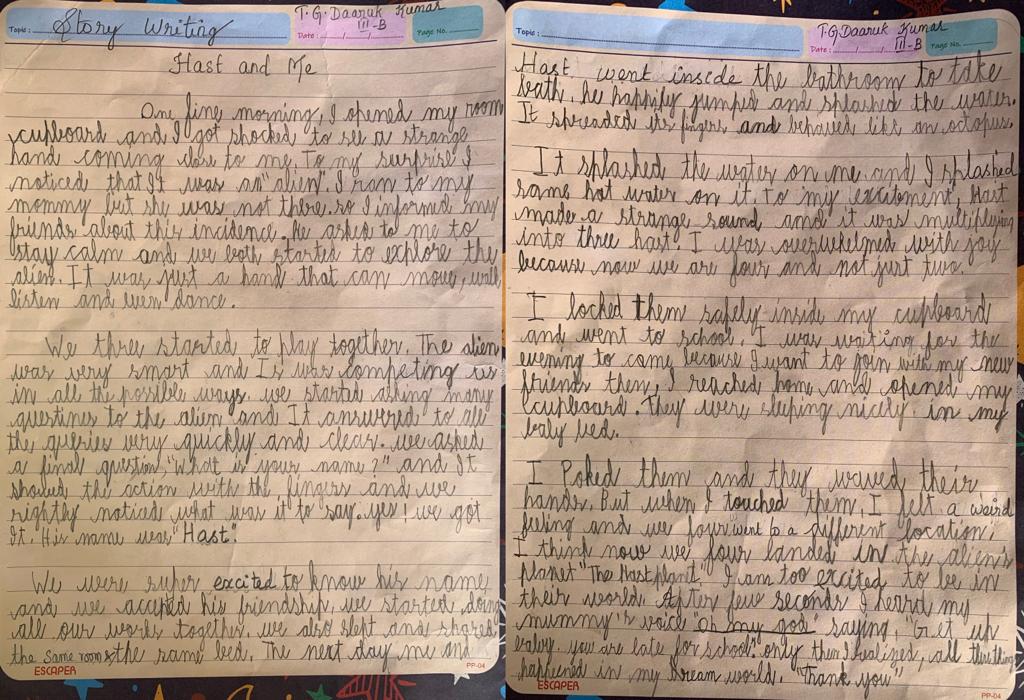 Topic: Story Writing
T.G. Daaruk Kumar
III-B
Date: / /
Page No.
Hast and Me
One fine morning, I opened my room
cupboard and I got shocked to see a strange
hand coming close to me. To my surprise I
noticed that It was an "alien". I ran to my
mommy but she was not there. so I informed my
friends about this incidence. He asked to me to
stay calm and we both started to explore the
alien. It was just a hand that can move, walk
listen and even dance.
We three started to play together. The alien
was very smart and It was competing us
in all the possible ways. we started asking many
questines to the alien and It answered to all
the queries very quickly and clear. we asked
a final question, "What is your name?" and It
showed the action with the fingers and we
rightly noticed what was it to say. yes! we got
It. His name was "Hast".
We were super excited to know his name
and we accepted his friendship. we started doing
all our works together. we also slept and shared
the same room & the same bed. The next day, me and
ESCAPER
PP-04
Topic:
T.G.Daaruk Kumar
III-B
Date: / /
Page No.
Hast went inside the bathroom to take
bath, he happify jumped and splashed the water.
It spreaded its fingers and behaved like an octopus.
It splashed the water on me and I splashed
same hot water on it. To my excitment, Hast
made a strange sound and it was multiplying
into three hast. I was overwhelmed with joy
because now we are four and not just two.
I locked them safely inside my cupboard
and went to school. I was waiting for the
evening to come because I want to join with my new
friends then, I reached hom and opened my
cupboard. They were sleeping nicely in my
baby bed.
I Poked them and they waved their
hands. But when I touched them, I felt a weird
feeling and we four went to a different location.
I think now we four landed in the alien's
planet "The Hast plant". I am too excited to be in
their world. After few seconds I heard my
mummy's voice "oh my god" saying, "Get up
baby. you are late for school". only then I realized, all this thing
happened in my dream world. "Thank you"
ESCAPER
PP-04